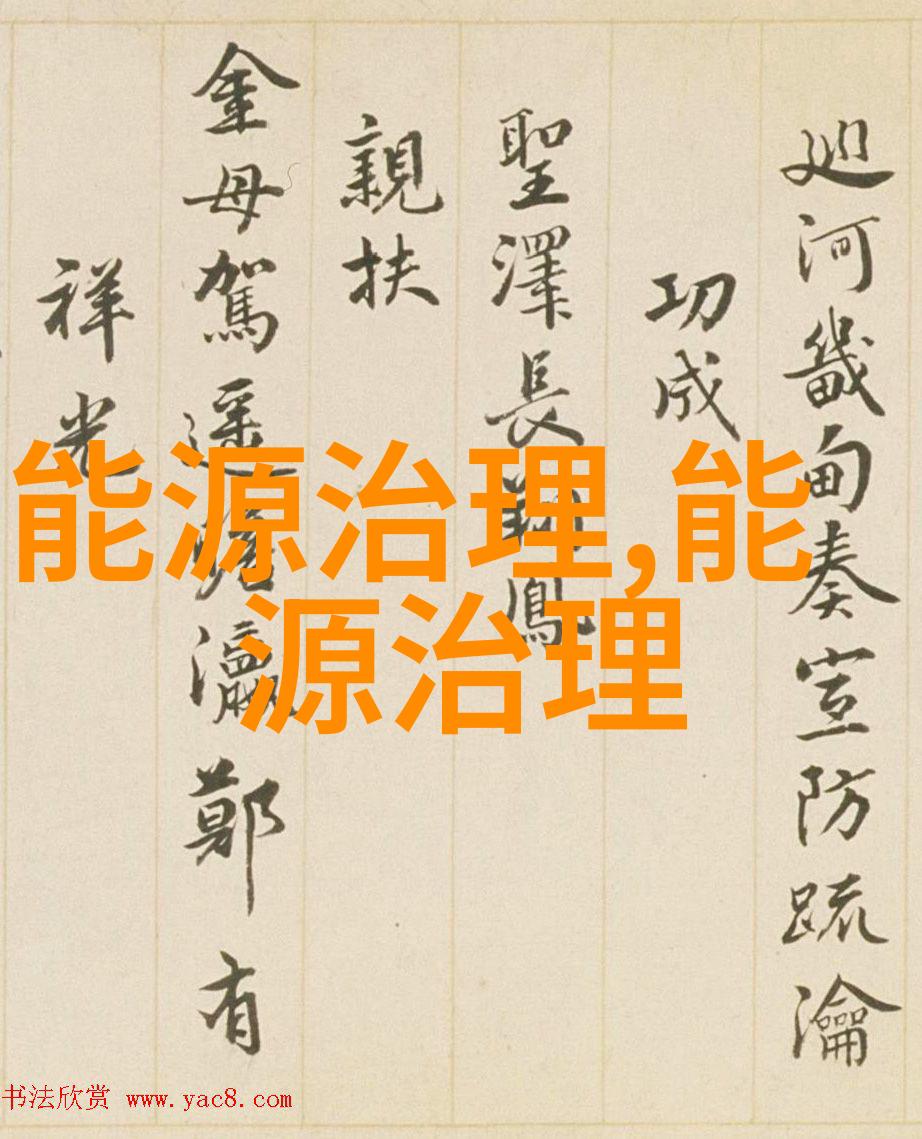 廵河畿甸奏宣防䟽瀹
功成
聖澤長翔鳳
親扶
金母駕遥瞻瀛鄭有
祥光
能源治理,能
源治理
书法欣赏 www.yac8.com